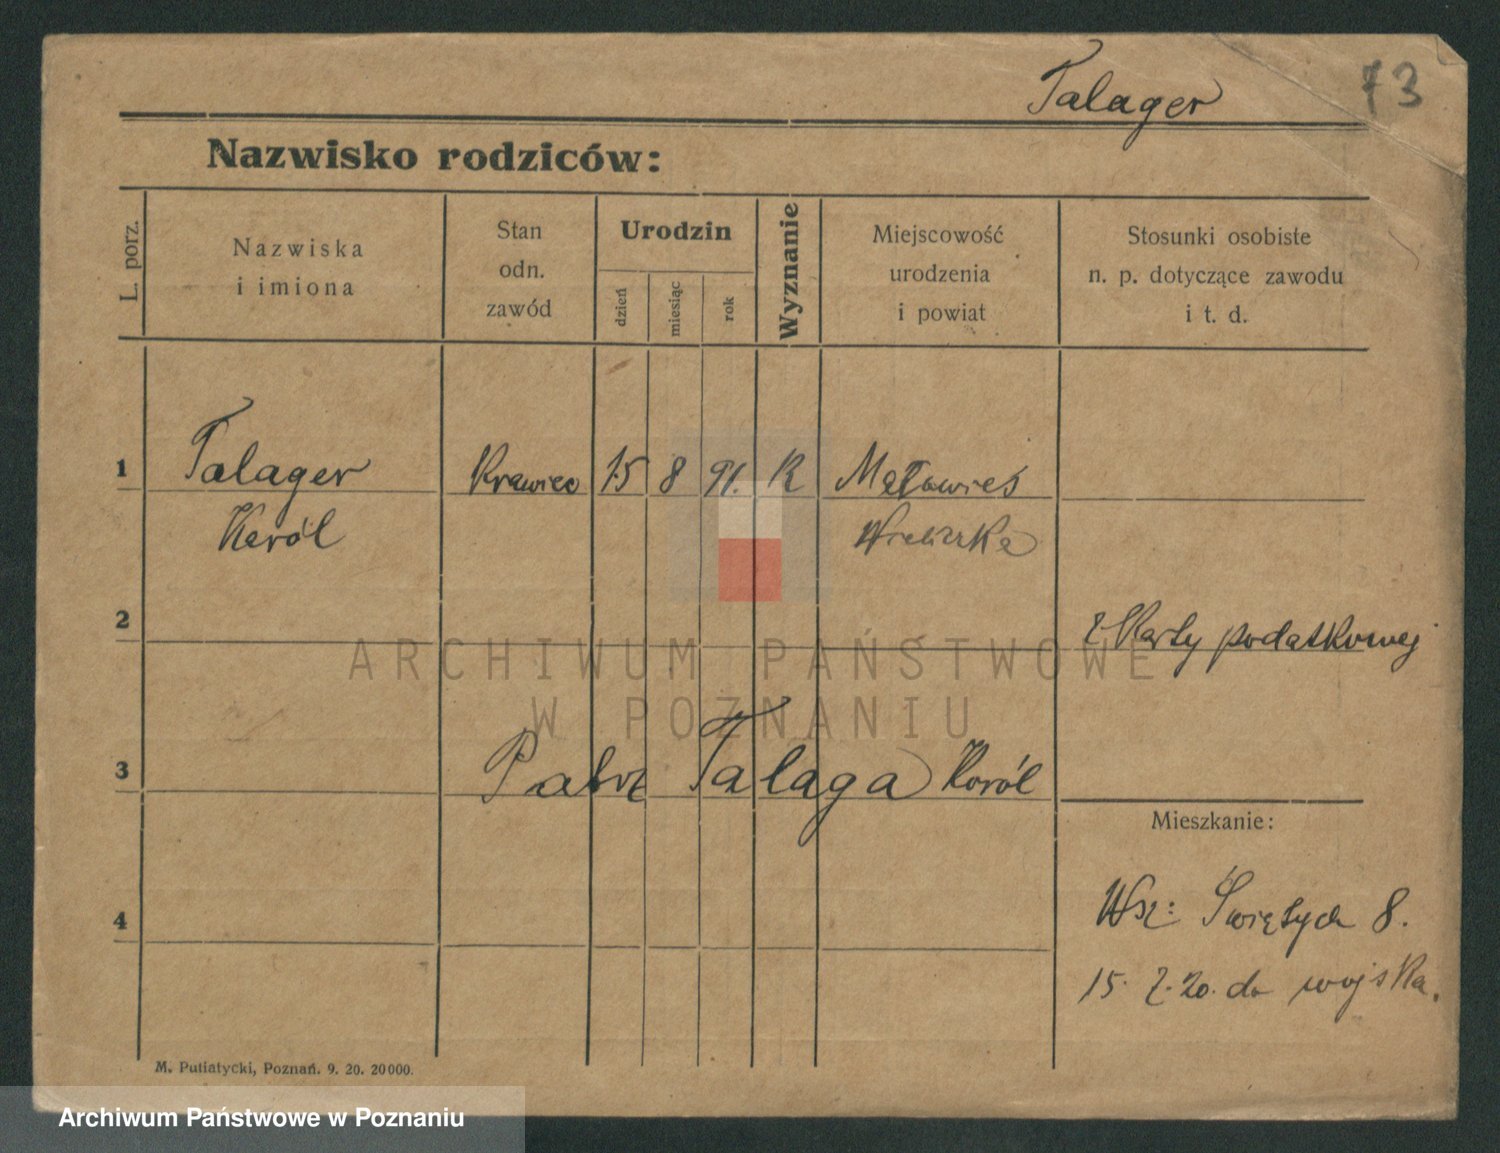 Talager
73
Nazwisko rodziców:
L. porz.
Nazwiska
i imiona
Stan
odn.
zawód
Urodzin
dzień
miesiąc
rok
Wyznanie
Miejscowość
urodzenia
i powiat
Stosunki osobiste
n. p. dotyczące zawodu
i t. d.
1 Talager Krawiec 15 8 91. R
Karól Wieliczka
2 z Karty podatkowej
3 Patrz Talaga Karól
Mieszkanie:
4 Wsz: Świętych 8.
15. 7. 20. do wojska.
M. Putiatycki, Poznań. 9. 20. 20000.
ARCHIWUM PAŃSTWOWE
W POZNANIU
Archiwum Państwowe w Poznaniu